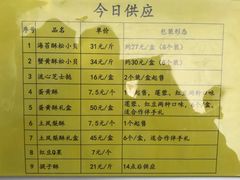 今日供应
序号 品名 单价 包装形态
1 海苔酥松小贝 31元/斤 约27元/盒（6个装）
2 蟹黄酥松小贝 34元/斤 约30元/盒（6个装）
3 流心芝士挞 16元/盒 2个起售
4 蛋黄酥 7.5元/个 莲蓉、红豆两种口味
5 蛋黄酥礼盒 50元/盒 6个/盒，莲蓉、红豆口味，适合作伴手礼
6 土凤梨酥 7.5元/个 1个起售
7 土凤梨酥礼盒 45元/盒 6个/盒，适合作伴手礼
8 红豆Q果 7元/个
9 筷子酥 21元/斤 14点后供应